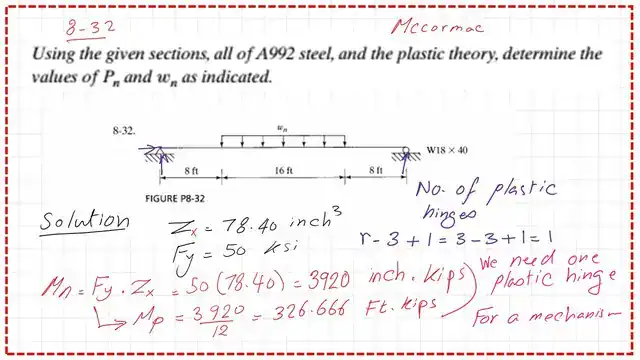 8-32
Mccormac
Using the given sections, all of A992 steel, and the plastic theory, determine the
values of Pn and wn as indicated.
8-32.
wn
W18 × 40
8 ft
16 ft
8 ft
FIGURE P8-32
No. of plastic
hinges
r - 3 + 1 = 3 - 3 + 1 = 1
Solution
Zx = 78.40 inch³
Fy = 50 ksi
Mn = Fy . Zx = 50 (78.40) = 3920 inch. kips
Mp = 3920/12 = 326.666 Ft. kips
We need one
plastic hinge
For a mechanism